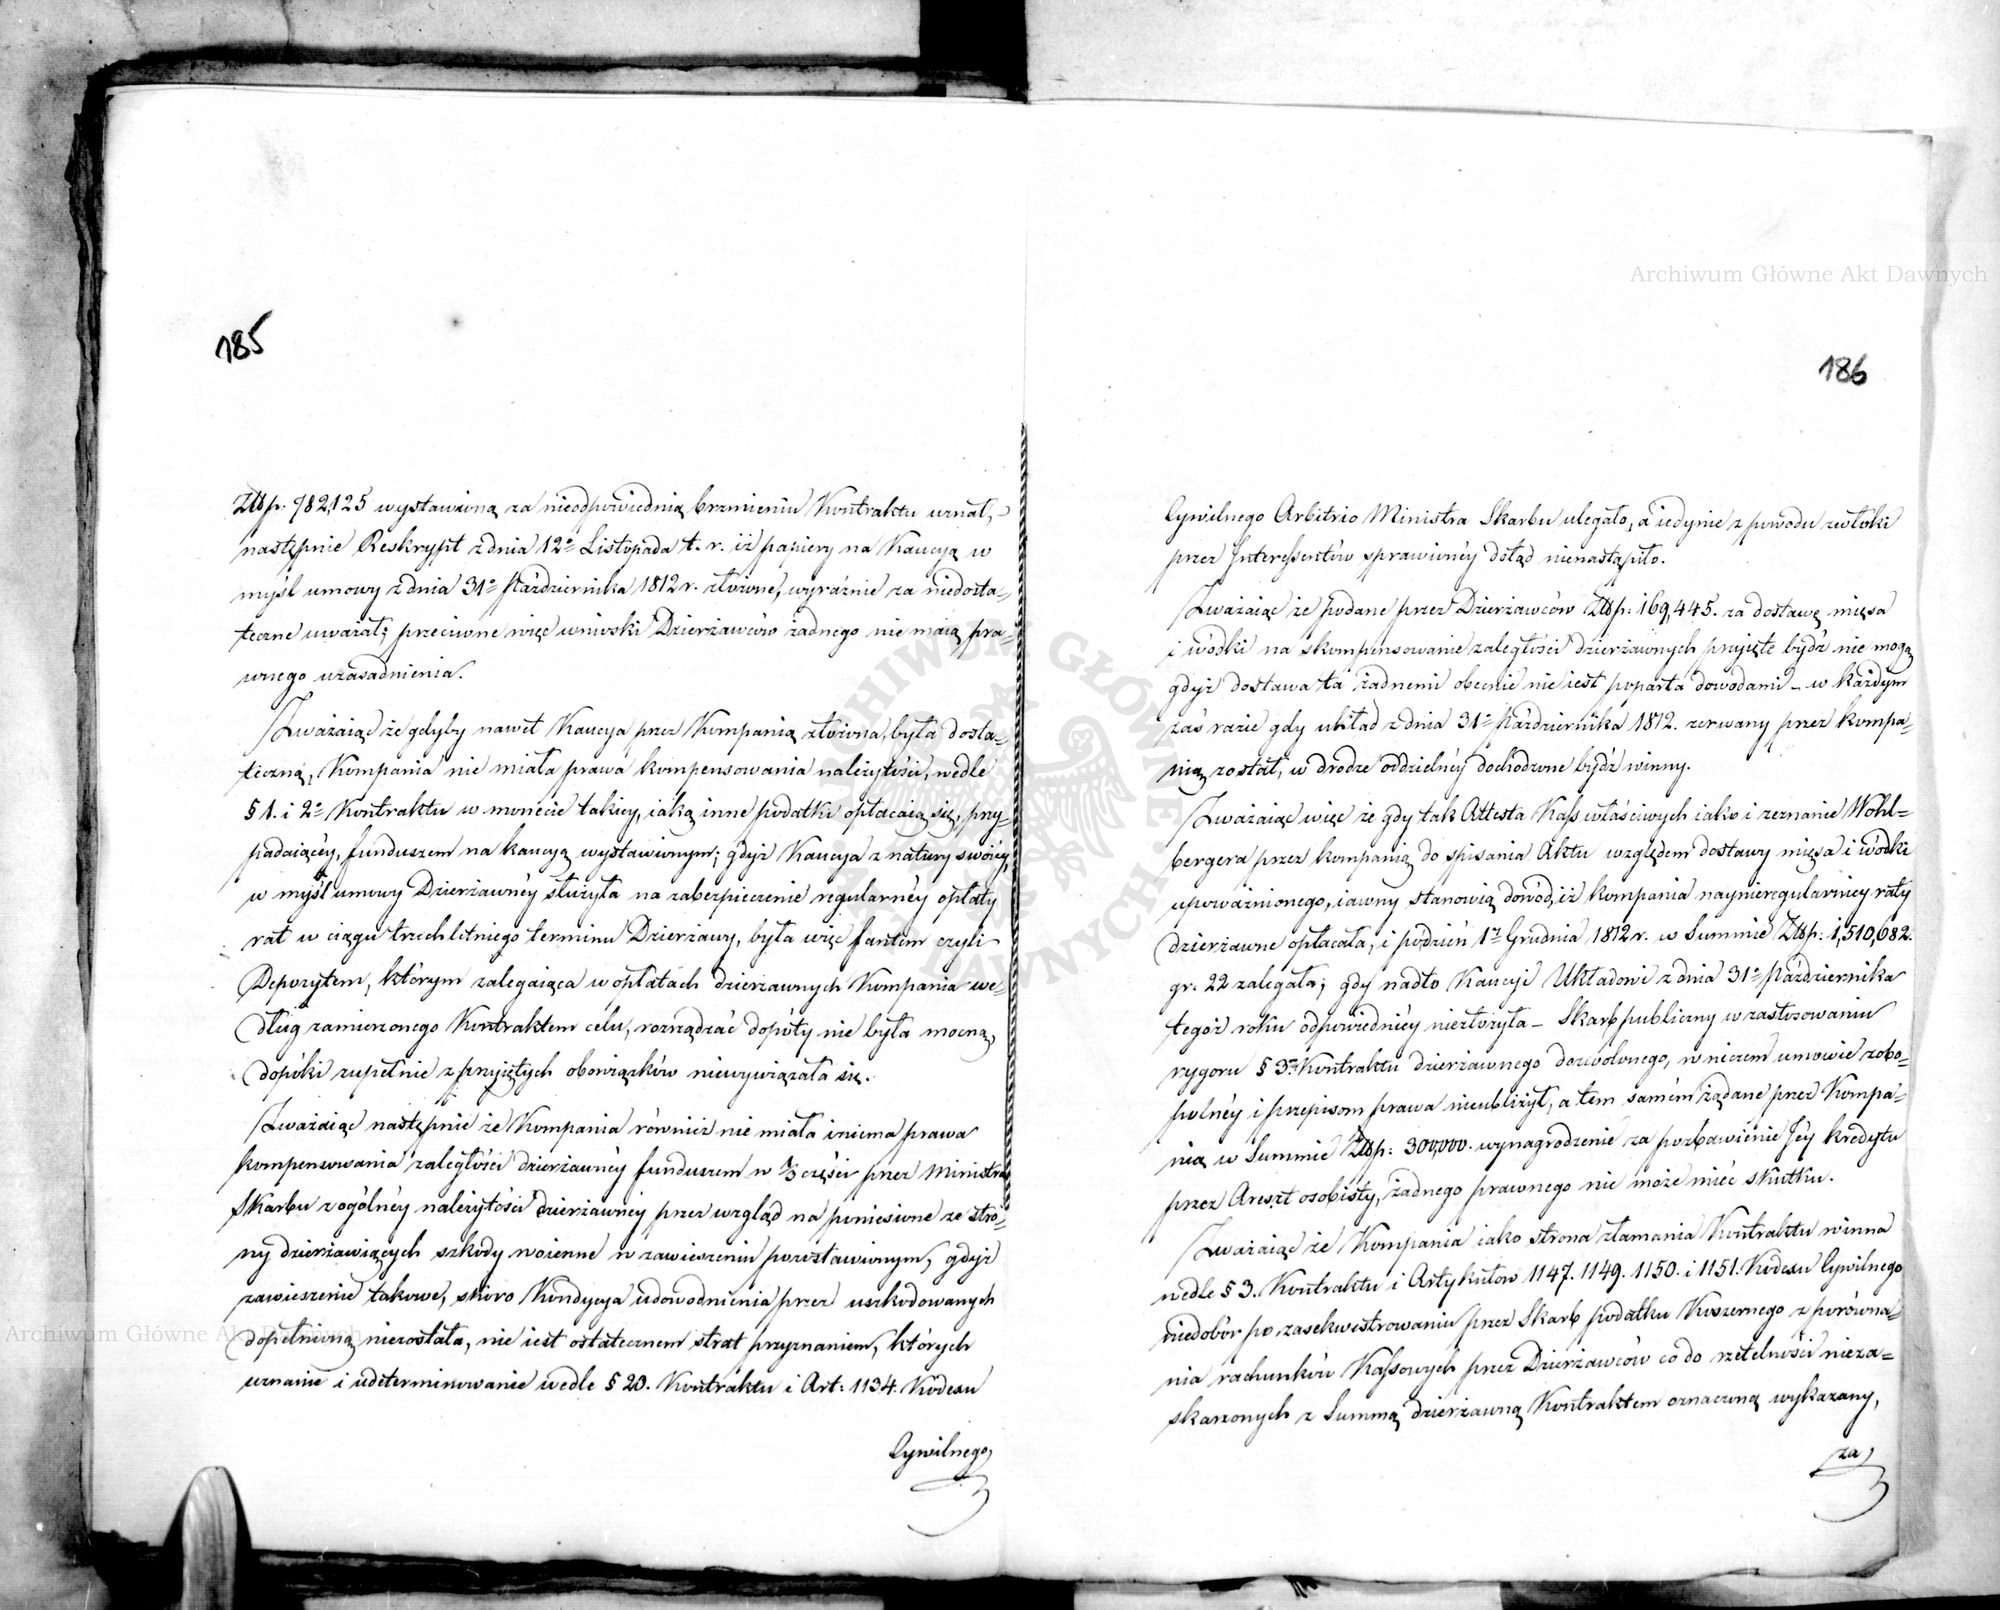 185
Złłp: 782,125 wystawioną za nieodpowiednią brzmieniu Kontraktu uznał,
następnie Reskrypt z dnia 12º Listopada t. r. iż papiery na Kaucyą w
myśl umowy z dnia 31º Października 1812 r. złożone, wyraźnie za niedosta=
teczne uważał; przeciwne więc wnioski Dzierżawców żadnego nie maią pra=
wnego uzasadnienia.
Zważaiąc że gdyby nawet Kaucya przez Kompanią złożona, była dosta=
teczną, Kompania nie miała prawa kompensowania należytości, wedle
§ 1. i 2º Kontraktu w monecie takiey, iaką inne podatki opłacaią się, przy=
padaiącéy, funduszem na kaucyą wystawionym; gdyż Kaucya z natury swoiéy,
w myśl umowy Dzierżawnéy służyła na zabezpieczenie regularnéy opłaty
rat w ciągu trzechletniego terminu Dzierżawy, była więc fantem czyli
Depozytem, którym zalegaiąca w opłatach dzierżawnych Kompania we=
dług zamierzonego Kontraktem celu, rozrządzać dopóty nie była mocną,
dopóki zupełnie z przyiętych obowiązków niewywiązała się.
Zważaiąc następnie że Kompania również nie miała i niema prawa
kompensowania zaległości dzierżawnéy funduszem w ⅓ części przez Ministra
Skarbu z ogólnéy należytości dzierżawnéy przez wzgląd na poniesione ze stro=
ny dzierżawiących szkody woienne w zawieszeniu pozostawionym, gdyż
zawieszenie takowe, skoro Kondycya udowodnienia przez uszkodowanych
dopełnioną niezostała, nie iest ostatecznem strat przyznaniem, których
uznanie i udeterminowanie wedle § 20. Kontraktu i Art: 1134. Kodexu
Cywilnego
186
Cywilnego Arbitrio Ministra Skarbu ulegało, a iedynie z powodu zwłoki
przez Interessentów sprawionéy dotąd nienastąpiło.
Zważaiąc że podane przez Dzierżawców Złłp: 169,445. za dostawę mięsa
i wódki na skompensowanie zaległości dzierżawnych przyięte bydź nie mogą
gdyż dostawa ta żadnemi obecnie nie iest poparta dowodami – w każdym
zaś razie gdy układ z dnia 31º Października 1812. zerwany przez kompa=
nią został, w drodze oddzielnéy dochodzone bydź winny.
Zważaiąc więc że gdy tak Attesta Kass właściwych iako i zeznanie Wohl=
bergera przez kompanią do spisania Aktu względem dostawy mięsa i wódki
upoważnionego, iawny stanowią dowód, iż kompania naynieregularniey raty
dzierżawne opłacała, i podzień 1º Grudnia 1812 r. w Summie Złłp: 1,510,682.
gr: 22 zalegała; gdy nadto Kaucyi Układowi z dnia 31º Października
tegoż roku odpowiedniéy niezłożyła – Skarb publiczny w zastosowaniu
rygoru § 3º Kontraktu dzierżawnego dozwolonego, w niczem umowie zobo=
polnéy i przepisom prawa nieubliżył, a tem samém żądane przez Kompa=
nią w Summie Złłp: 300,000. wynagrodzenie za pozbawienie Jéy kredytu
przez Areszt osobisty, żadnego prawnego nie może mieć skutku.
Zważaiąc że Kompania iako strona złamania Kontraktu winna
wedle § 3. Kontraktu i Artykułow 1147. 1149. 1150. i 1151. Kodexu Cywilnego
niedobór po zasekwestrowaniu przez Skarb podatku Koszernego z porówna=
nia rachunków Kassowych przez Dzierżawców co do rzetelności nieza=
skarzonych z Summą dzierżawną Kontraktem oznaczoną wykazany,
za
Archiwum Główne Akt Dawnych
Archiwum Główne Akt Dawnych